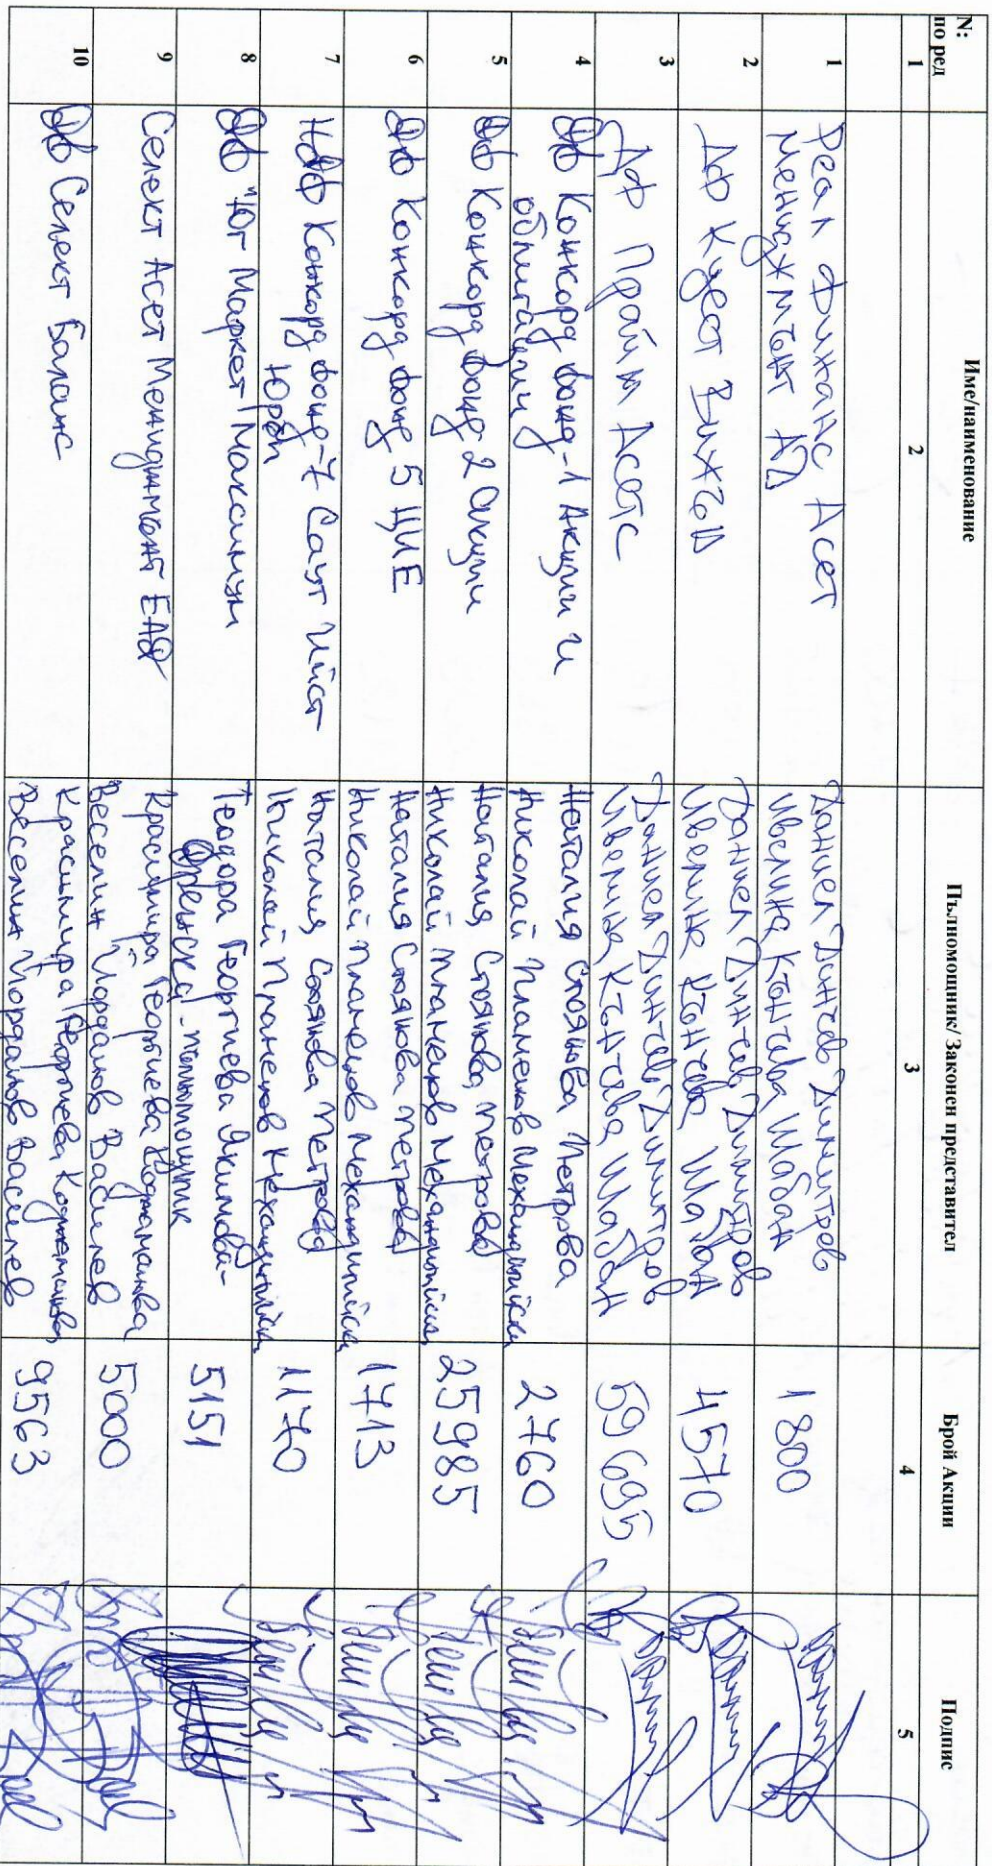 N:
по ред
Име/наименование
Пълномощник/ Законен представител
Брой Акции
Подпис
1
2
3
4
5
1
Реал Финанс Асет
Мениджмънт АД
Даниел Дончев Димитров
Ивелина Кънчева Шабан
1800
2
ДФ Куест Вижън
Даниел Дончев Димитров
Ивелина Кънчева Шабан
4570
3
ДФ Прайм Асетс
Даниел Дончев Димитров
Ивелина Кънчева Шабан
59695
4
ДФ Конкорд фонд-1 Акции и
облигации
Наталия Стоянова Петрова
Николай Пламенов
2760
5
ДФ Конкорд фонд-2 Акции
Наталия Стоянова Петрова
Николай Пламенов
25985
6
ДФ Конкорд фонд 5 ЦИЕ
Наталия Стоянова Петрова
Николай Пламенов
1713
7
НДФ Конкорд фонд-7 Саут Ийст
Юръп
Наталия Стоянова Петрова
Николай Пламенов
1170
8
ДФ "Юг Маркет Максимум
Теодора Георгиева Якимова-
Дренска - пълномощник
5151
9
Селект Асет Мениджмънт ЕАД
Красимира Георгиева Коджаманова
Веселин Йорданов Василев
5000
10
ДФ Селект Баланс
Красимира Георгиева Коджаманова
Веселин Йорданов Василев
9563